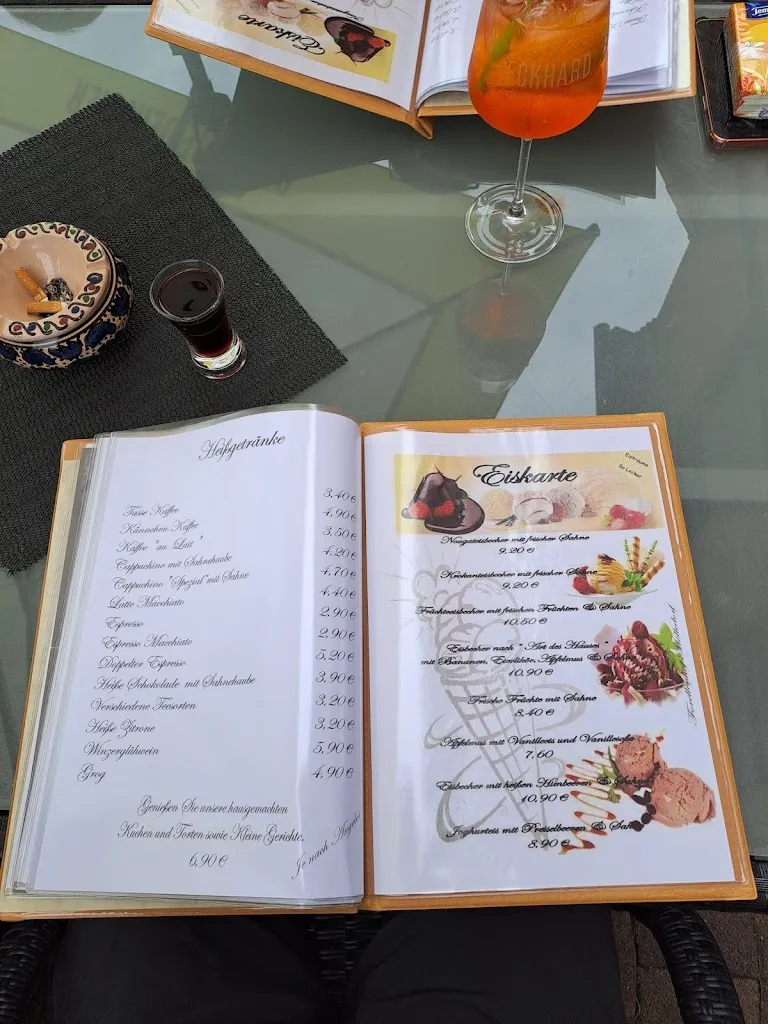 Eiskarte
ECKHARD
Tem
Heißgetränke
Tasse Kaffee 3,40 €
Kännchen Kaffee 4,90 €
Kaffee "au Lait" 3,50 €
Cappuchino mit Sahnehaube 4,20 €
Cappuchino "Spezial" mit Sahne 4,70 €
Latte Macchiato 4,40 €
Espresso 2,90 €
Espresso Macchiato 2,90 €
Doppelter Espresso 5,20 €
Heiße Schokolade mit Sahnehaube 3,90 €
Verschiedene Teesorten 3,20 €
Heiße Zitrone 3,20 €
Winzerglühwein 5,90 €
Grog 4,90 €
Genießen Sie unsere hausgemachten
Kuchen und Torten sowie Kleine Gerichte.
6,90 €
Je nach Angebot
Eiskarte
Eisträume
So Lecker
Nougateisbecher mit frischer Sahne
9,20 €
Krokanteisbecher mit frischer Sahne
9,20 €
Früchteeisbecher mit frischen Früchten & Sahne
10,50 €
Eisbecher nach "Art des Hauses"
mit Bananen, Eierlikör, Apfelmus & Sahne
10,90 €
Frische Früchte mit Sahne
8,40 €
Apfelmus mit Vanilleeis und Vanillesoße
7,60
Eisbecher mit heißen Himbeeren & Sahne
10,90 €
Joghurteis mit Preiselbeeren & Sahne
8,90 €